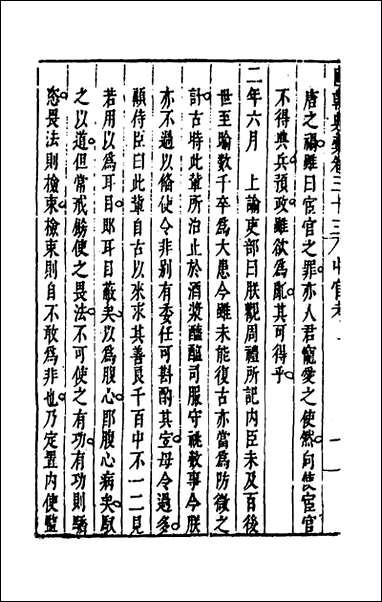 國朝典彙卷三十三 中官考 一
唐之禍雖曰宦官之罪亦人君寵愛之使然向使宦官
不得典兵預政雖欲為亂其可得乎
二年六月 上諭吏部曰朕觀周禮所記內臣未及百後
世至踰數千卒為大患今雖未能復古亦當為防微之
計古時此輩所治止於酒漿醯醢司服守祧數事今朕
亦不過以備使令非別有委任可斟酌其宜毋令過多
顧侍臣曰此輩自古以來求其善良千百中不一二見
若用以為耳目即耳目蔽矣以為腹心即腹心病矣馭
之以道但當戒飭使之畏法不可使之有功有功則驕
恣畏法則檢束檢束則自不敢為非也乃定置內使監